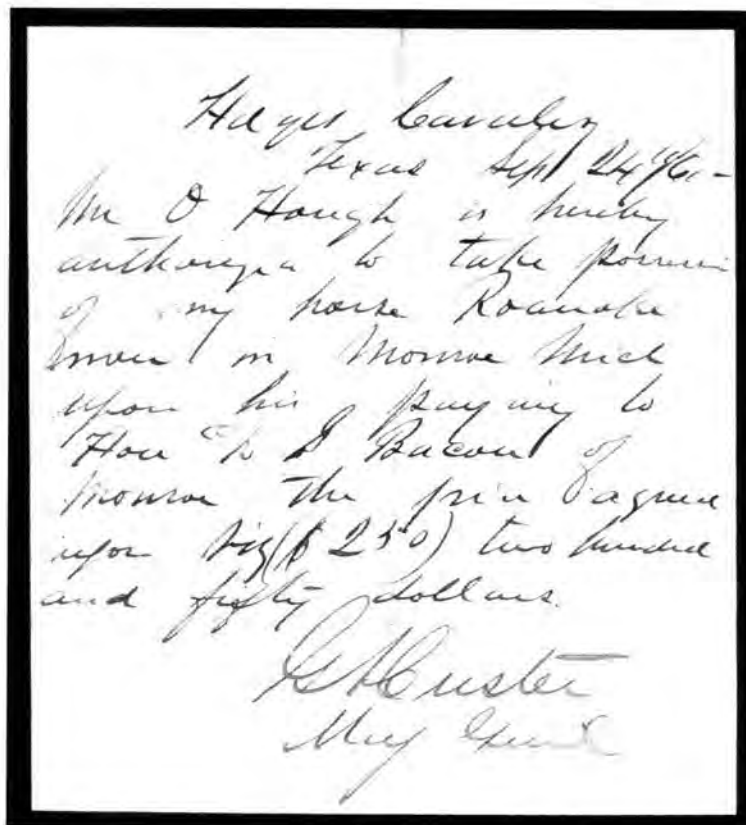 Hd qrs Cavalry
Texas Sept 24th
Mr O Hough is hereby
authorized to take possession
of my horse Roanoke
now in Monroe Mich
upon his paying to
Hon D S Bacon of
Monroe the price agreed
upon viz ($250) two hundred
and fifty dollars.
G A Custer
Maj Genl